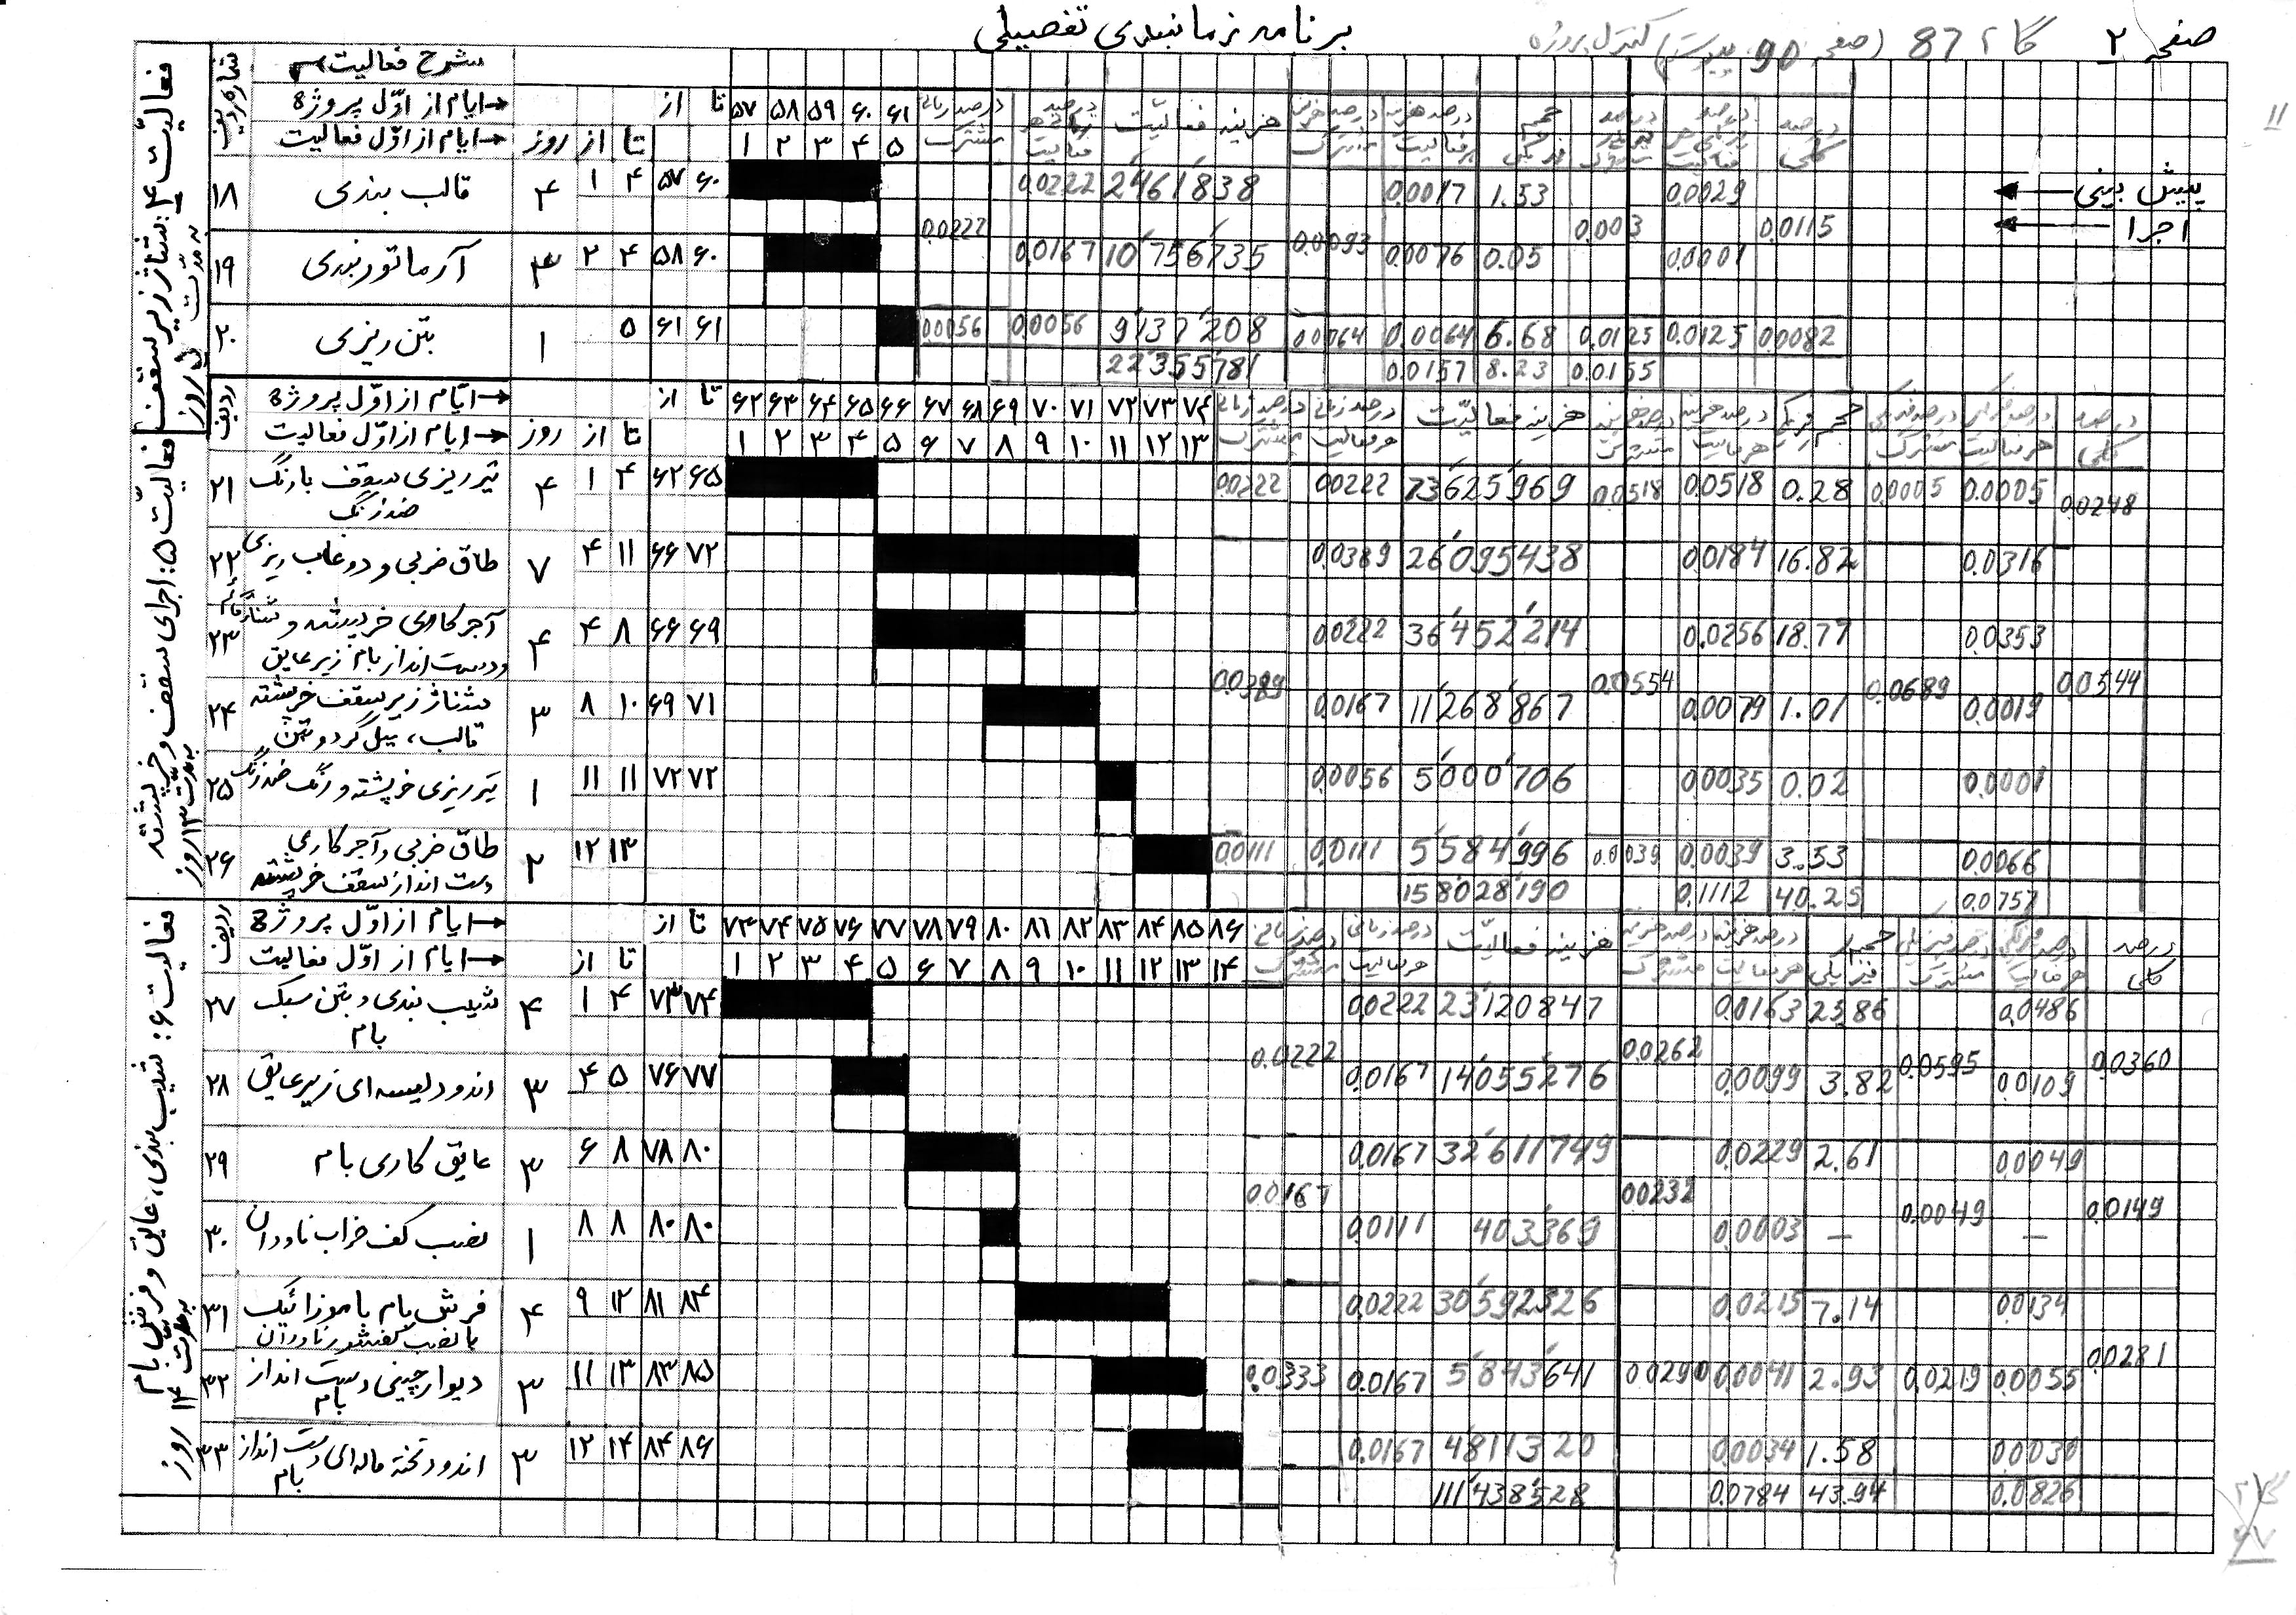 برنامه زمانبندی تفصیلی
صفحه ۲ گات 87 (صفحه 90 پیوست) کنترل پروژه
11
پیش بینی
اجرا
فعالیت ۴: شناژ زیر سقف به مدت ۵ روز
شماره ردیف شرح فعالیت
ایام از اوّل پروژه از تا ۵۷ ۵۸ ۵۹ ۶۰ ۶۱ درصد زمانی مشترک درصد زمانی هر فعالیت هزینه فعالیت درصد هزینه مشترک درصد هزینه هر فعالیت حجم فیزیکی درصد فیزیکی مشترک درصد فیزیکی هر فعالیت درصد کلی
ایام از اوّل فعالیت روز از تا 1 ۲ ۳ ۴ ۵
۱۸ قالب بندی ۴ ۱ ۴ ۵۷ ۶۰ 0.0222 2461838 0.0017 1.53 0.0029
0.0222 0.0093 0.003 0.0115
۱۹ آرماتوربندی ۳ ۲ ۴ ۵۸ ۶۰ 0.0167 10756735 0.0076 0.05 0.0001
۲۰ بتن ریزی ۱ ۵ ۶۱ ۶۱ 0.0056 0.0056 9137208 0.0064 0.0064 6.68 0.0125 0.0125 0.0082
22355781 0.0157 8.23 0.0155
فعالیت ۵: اجرای سقف و خرپشته به مدت ۱۳ روز
ردیف ایّام از اوّل پروژه از تا ۶۲ ۶۳ ۶۴ ۶۵ ۶۶ ۶۷ ۶۸ ۶۹ ۷۰ ۷۱ ۷۲ ۷۳ ۷۴ درصد زمانی مشترک درصد زمانی هر فعالیت هزینه فعالیّت درصد هزینه مشترک درصد هزینه هر فعالیت حجم فیزیکی درصد فیزیکی مشترک درصد فیزیکی هر فعالیت درصد کلی
ایام از اوّل فعالیت روز از تا ۱ ۲ ۳ ۴ ۵ ۶ ۷ ۸ ۹ ۱۰ ۱۱ ۱۲ ۱۳
۲۱ تیرریزی سقف با رنگ ضدزنگ ۴ ۱ ۴ ۶۲ ۶۵ 0.0222 0.0222 73625969 0.0518 0.0518 0.28 0.0005 0.0005 0.0248
۲۲ طاق ضربی و دوغاب ریزی ۷ ۴ ۱۱ ۶۶ ۷۲ 0.0389 26095438 0.0184 16.82 0.0316
۲۳ آجرکاری خرپشته و شناژ قائم و دست انداز بام زیر عایق ۴ ۴ ۸ ۶۶ ۶۹ 0.0222 36452214 0.0256 18.77 0.0353
0.0389 0.0554 0.0689 0.0544
۲۴ شناژ زیر سقف خرپشته قالب، میلگرد و بتن ۳ ۸ ۱۰ ۶۹ ۷۱ 0.0167 11268867 0.0079 1.01 0.0019
۲۵ تیرریزی خرپشته و رنگ ضدزنگ ۱ ۱۱ ۱۱ ۷۲ ۷۲ 0.0056 5000706 0.0035 0.02 0.0001
۲۶ طاق ضربی و آجرکاری دست انداز سقف خرپشته ۲ ۱۲ ۱۳ 0.0111 0.0111 5584996 0.0039 0.0039 3.53 0.0066
158028190 0.1112 40.25 0.0757
فعالیت ۶: شیب بندی، عایق و فرش بام به مدت ۱۴ روز
ردیف ایام از اوّل پروژه از تا ۷۳ ۷۴ ۷۵ ۷۶ ۷۷ ۷۸ ۷۹ ۸۰ ۸۱ ۸۲ ۸۳ ۸۴ ۸۵ ۸۶ درصد زمانی مشترک درصد زمانی هر فعالیت هزینه فعالیّت درصد هزینه مشترک درصد هزینه هر فعالیت حجم فیزیکی درصد فیزیکی مشترک درصد فیزیکی هر فعالیت درصد کلی
ایام از اوّل فعالیت از تا ۱ ۲ ۳ ۴ ۵ ۶ ۷ ۸ ۹ ۱۰ ۱۱ ۱۲ ۱۳ ۱۴
۲۷ شیب بندی و بتن سبک بام ۴ ۱ ۴ ۷۳ ۷۴ 0.0222 23120847 0.0163 25.86 0.0486
0.0222 0.0262 0.0595 0.0360
۲۸ اندود لیسه ای زیر عایق ۳ ۴ ۵ ۷۶ ۷۷ 0.0167 14055276 0.0099 3.82 0.0109
۲۹ عایق کاری بام ۳ ۶ ۸ ۷۸ ۸۰ 0.0167 32611749 0.0229 2.61 0.0049
0.0167 0.0232 0.0049 0.0149
۳۰ نصب کف خواب ناودان ۱ ۸ ۸ ۸۰ ۸۰ 0.0111 403369 0.0003 — —
۳۱ فرش بام با موزائیک با نصب کفشور ناودان ۴ ۹ ۱۲ ۸۱ ۸۴ 0.0222 30592326 0.0215 7.14 0.0134
۳۲ دیوار چینی دست انداز بام ۳ ۱۱ ۱۳ ۸۳ ۸۵ 0.0333 0.0167 5843641 0.0290 0.0041 2.93 0.0219 0.0055 0.0281
۳۳ اندود تخته ماله ای دست انداز بام ۳ ۱۲ ۱۴ ۸۴ ۸۶ 0.0167 4811320 0.0034 1.58 0.0030
111438528 0.0784 43.94 0.0826